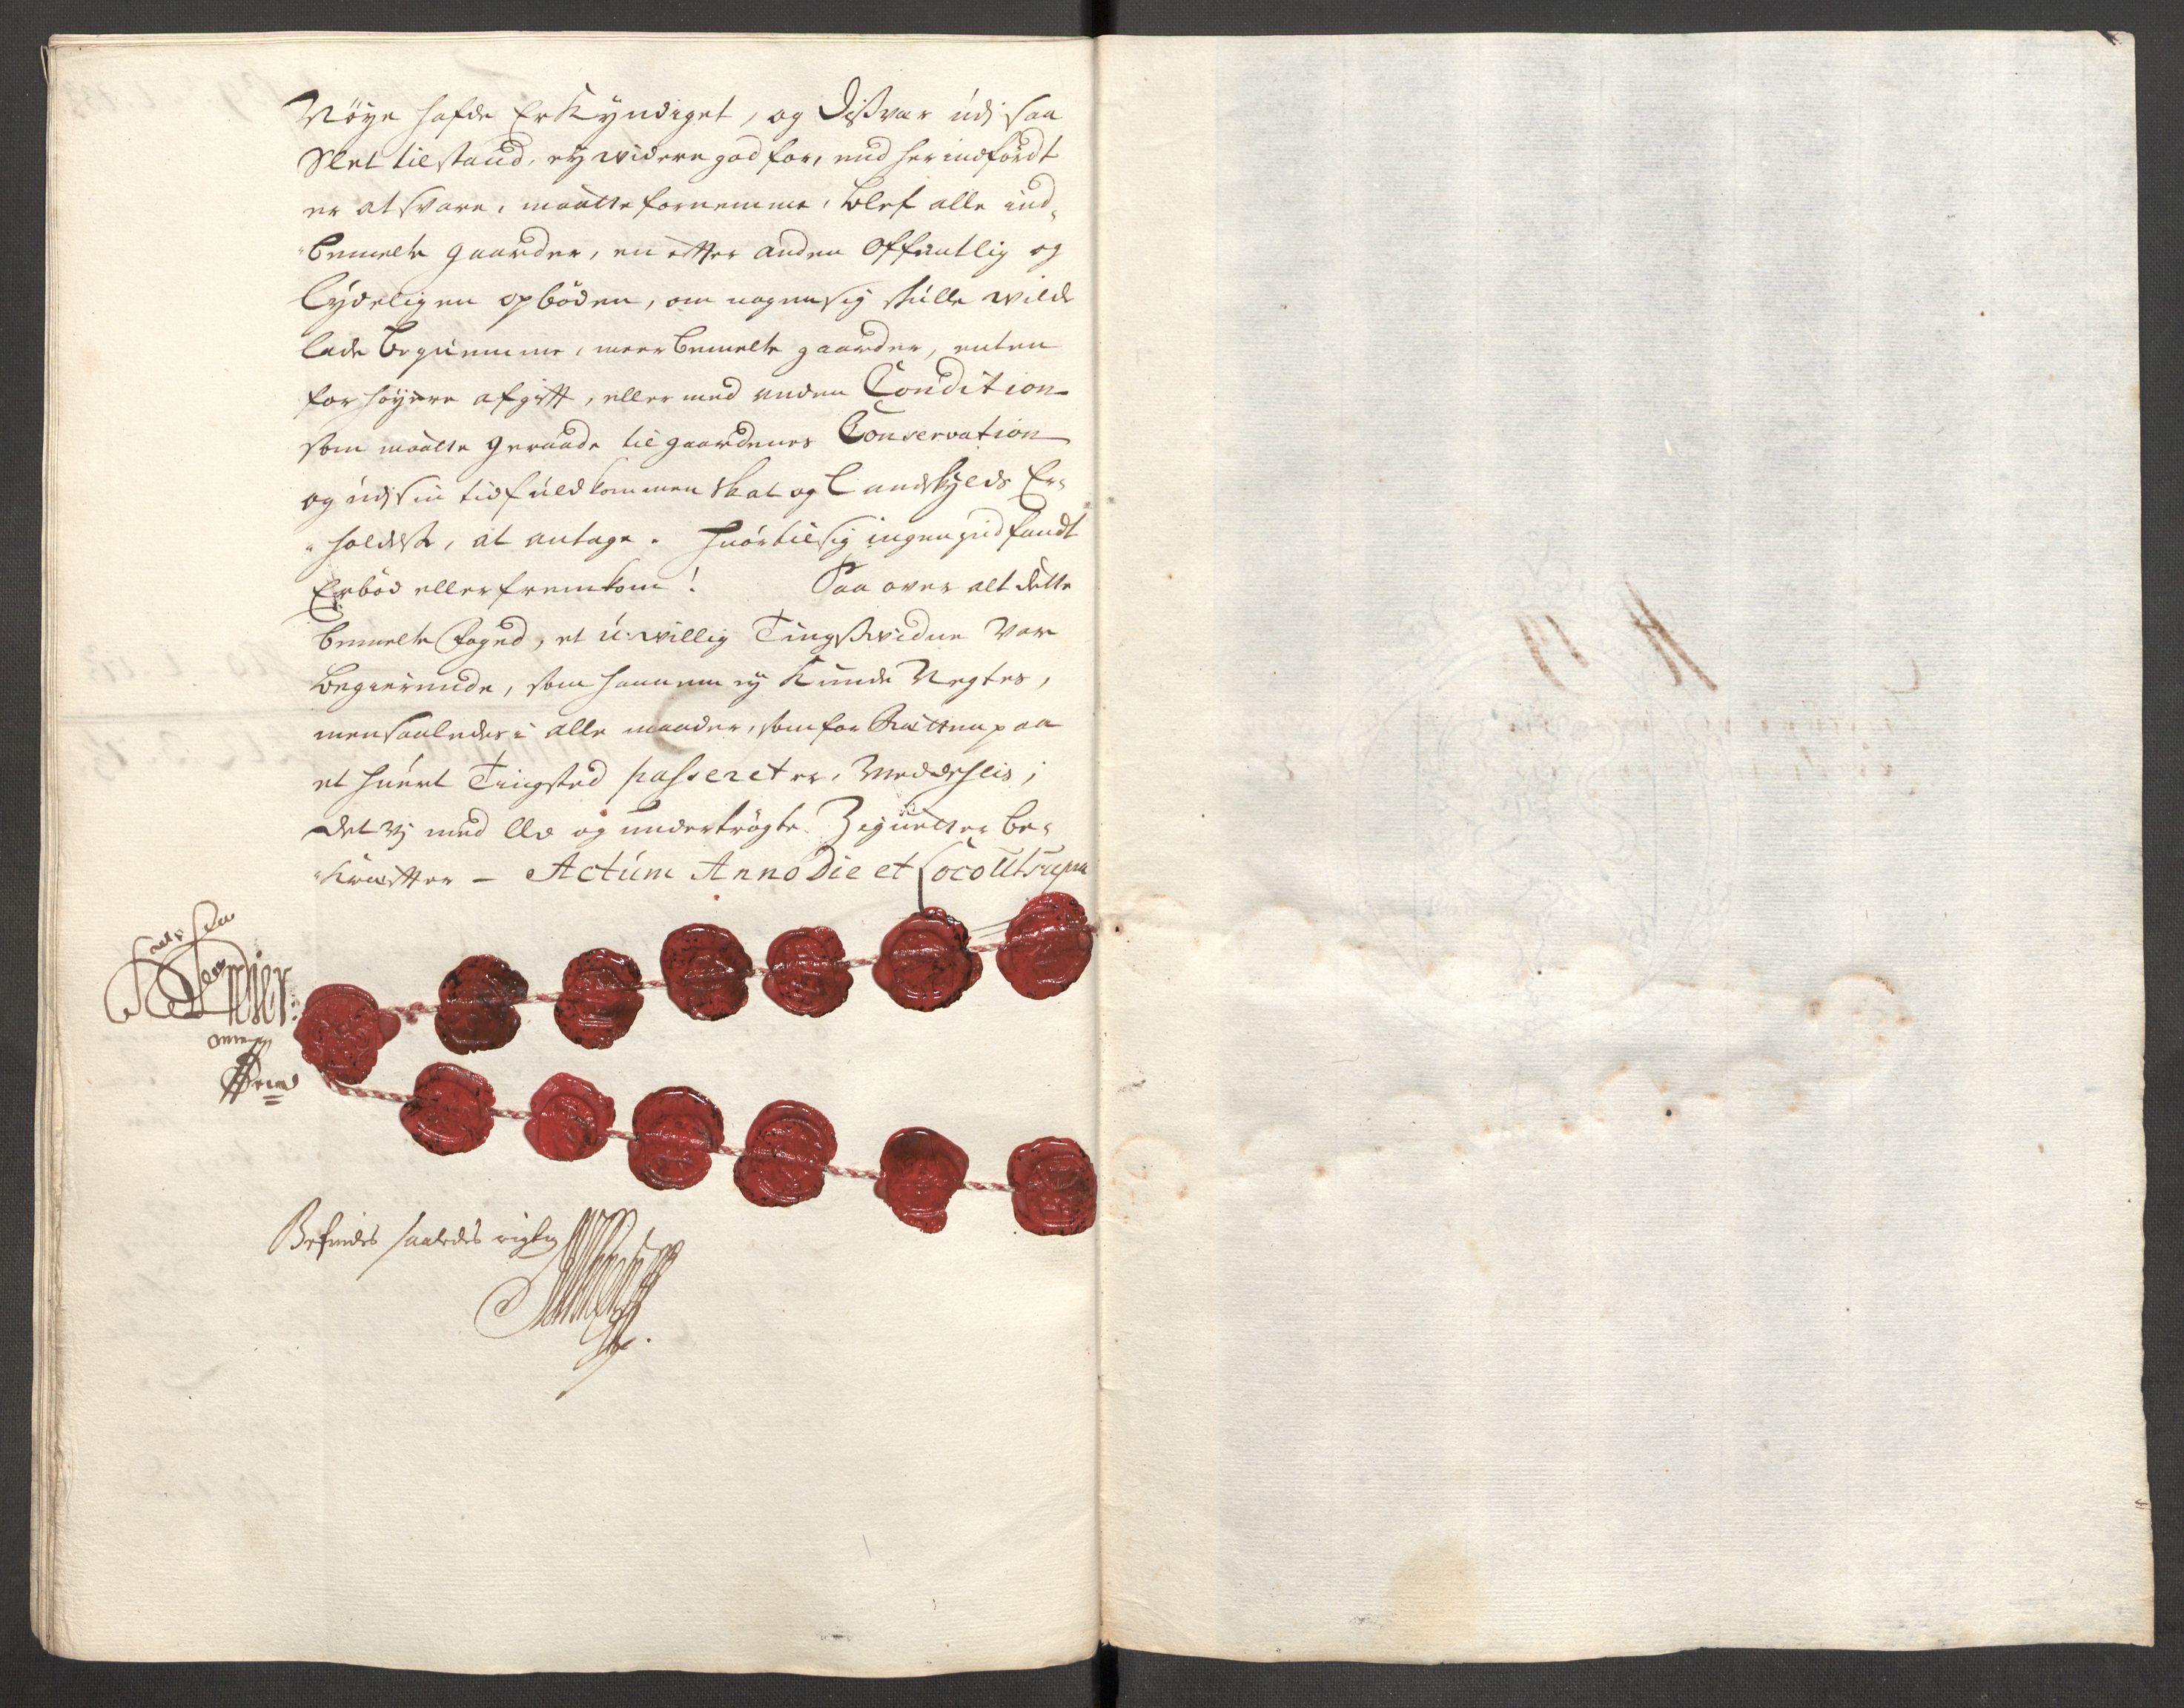 Nöye hafde Erkyndiget, og Dißvar udj saa
Slet tilstand, ey widere god for, end her indfördt
er at svare, maatte fornemme, blef alle ind¬
bemelte gaarder, en efter anden Offentlig og
lydeligen opböden, om nogen sig skulle wilde
lade beqvemme, meer bemelte gaarder, enten
for höyere afgift, eller med anden Condition
som maatte geraade til gaardenes Conservation
og udj sin tid fuldkommen skat og Landskylds Er¬
holdelse, at antage. Hvortil sig ingen gid fandt
Erböd eller fremkom! Saa over alt dette
bemelte Foged, et u-willig Tingßwidne Var
begierende, som hannem ey Kunde Negtes,
men saaledes i alle maader, som for Retten paa
et huert Tingsted passeret er, Meddelis;
det Vj med Vo og undertrögte Zignetter be¬
kræfter – Actum Anno Die et Loco Ut supra
Befindes saaledes rigtig
N 19